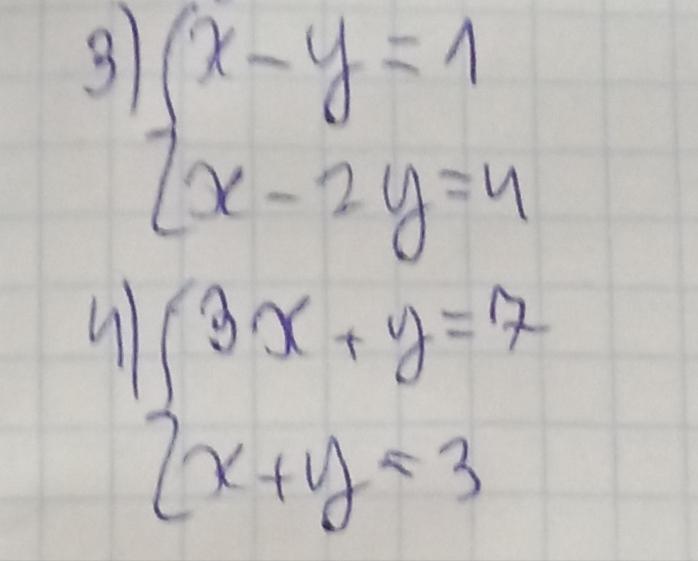 3) { x - y = 1
x - 2y = 4
4) { 3x + y = 7
x + y = 3